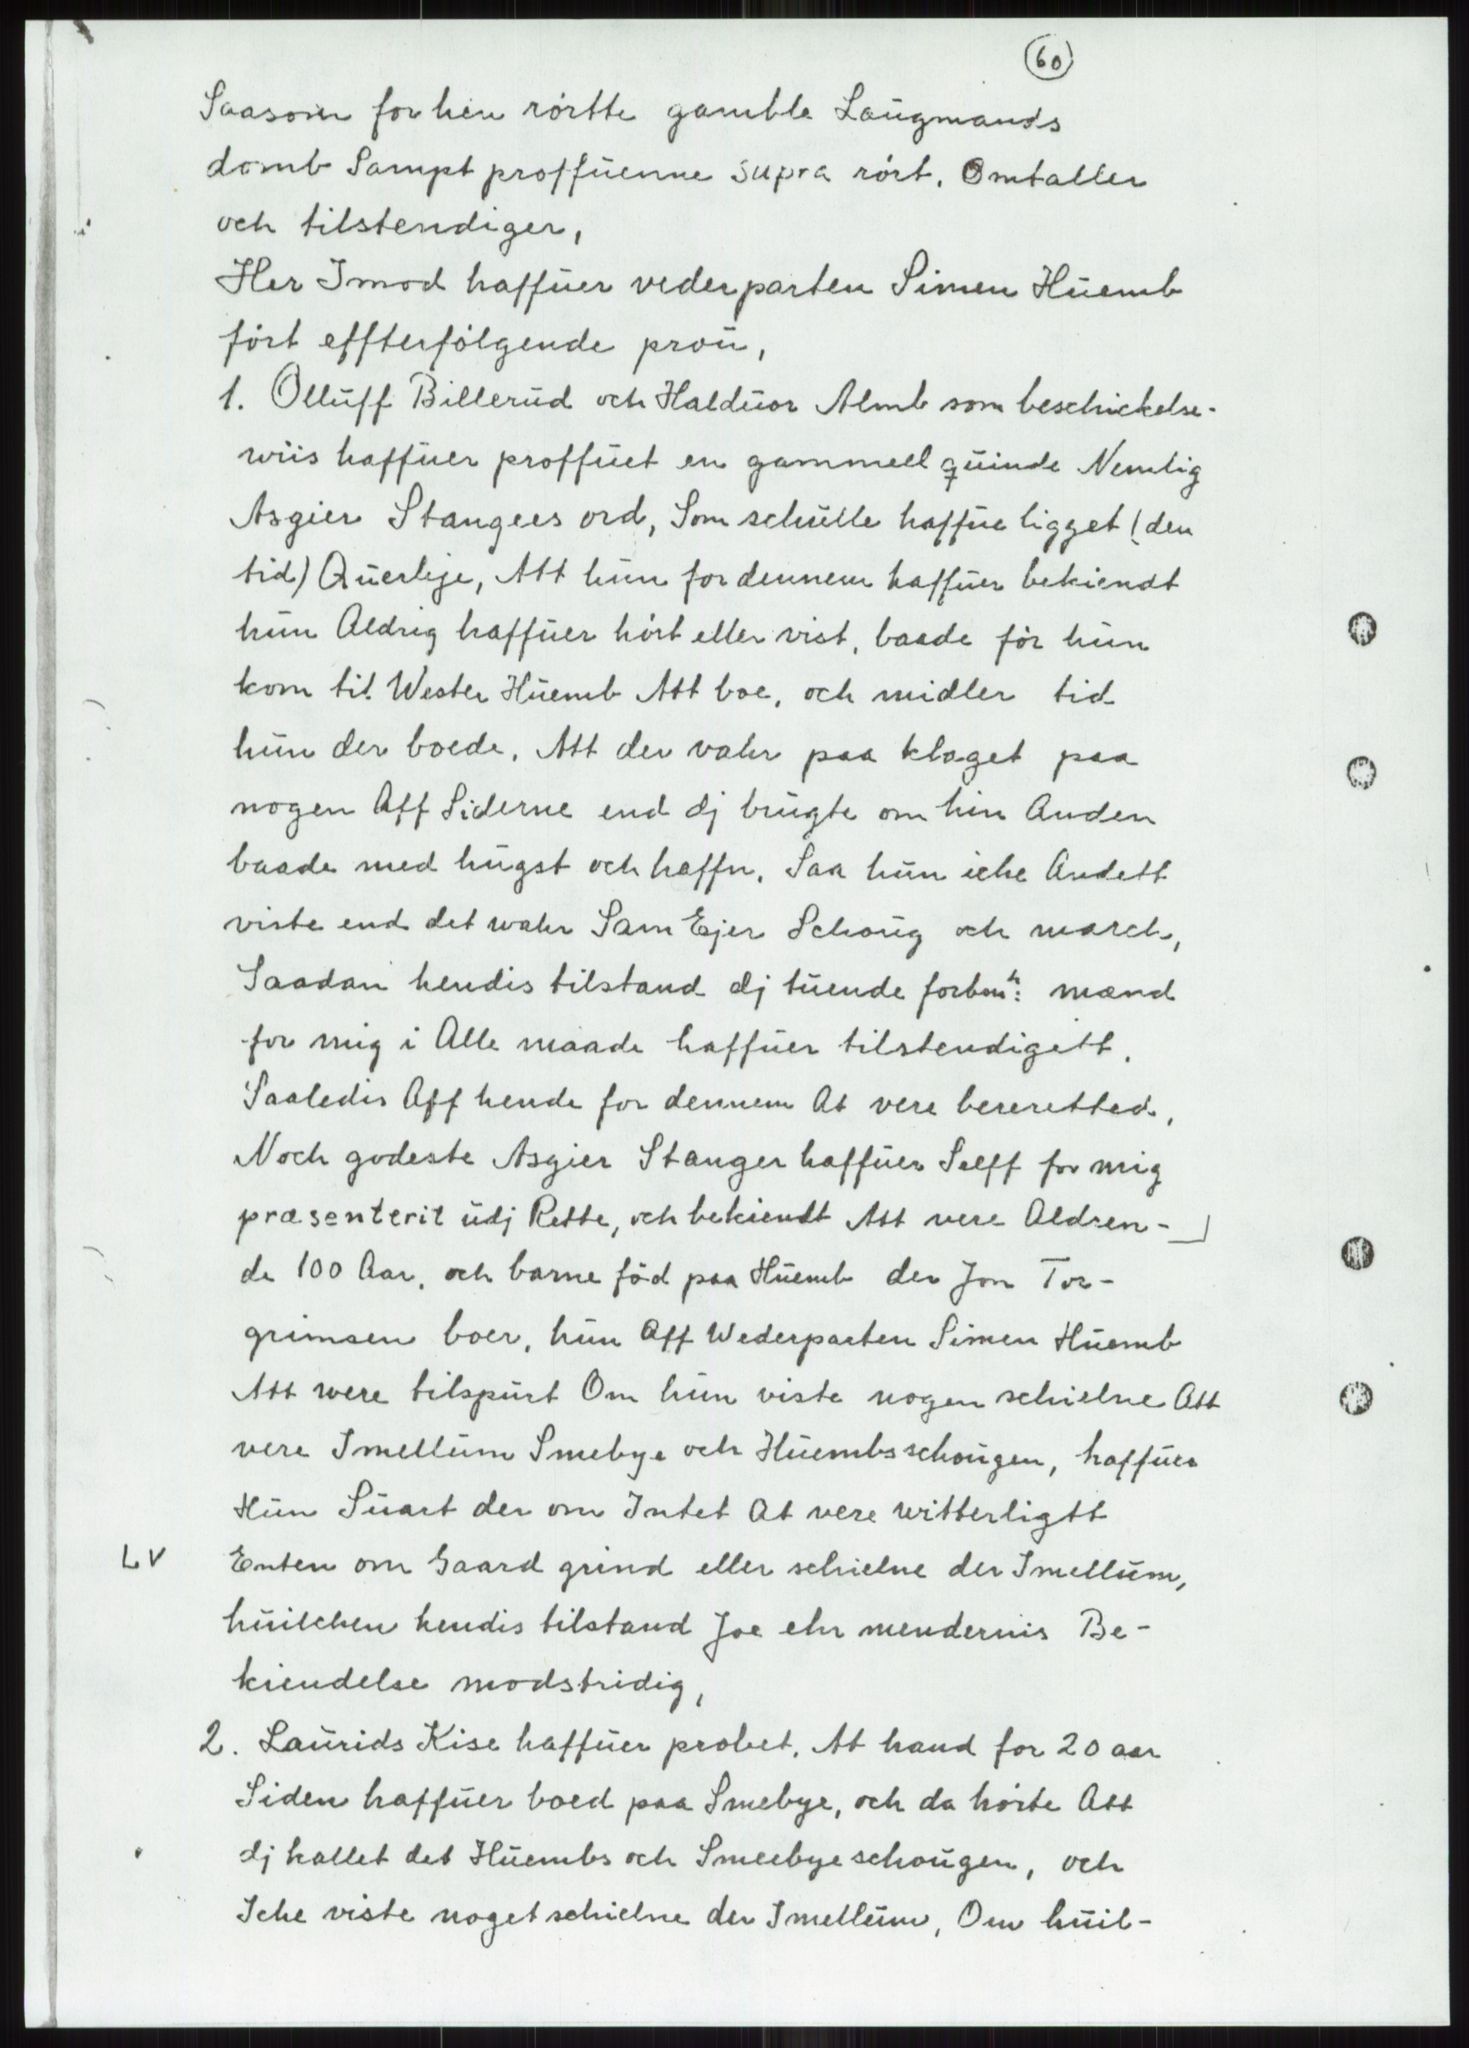 60
Saasom for hen rörtte gamble Laugmands
domb Sampt proffüenne supra rört. Omtaller
och tilstendiger,
Her Imod haffüer vederparten Simen Hüemb
fört effterfölgende proü,
1. Ollüff Billerüd och Haldüor Almb som beschickelse-
wiis haffüer proffüet en gammell qüinde Nemlig
Asgier Stangees ord, Som schülle haffüe ligget (den
tid) Qüerleje, Att hün for dennem haffüer bekiendt
hün Aldrig haffüer hört eller vist, baade för hün
kom til Wester Hüemb Att boe, och midler tid
hün der boede. Att der vahr paa klaget paa
nogen Aff Siderne end dj brügte om hin Anden
baade med hügst och haffn. Saa hün iche Andett
viste end det wahr Sam Ejer Schoüg och march,
Saadan hendis tilstand dj tüende forbemᵗ: mænd
for mig i Alle maade haffüer tilstendigett.
Saaledis Aff hende for dennem At vere bereretted,
Noch godeste Asgier Stanger haffüer Selff for mig
præsenterit üdj Rette, och bekiendt Att vere Aldren-
de 100 Aar. och barne föd paa Hüemb der Jon Tor-
grimsen boer, hün Aff Wederparten Simen Hüemb
Att were tilspürt Om hün viste nogen schielne Att
vere Imellüm Smebye och Hüembsschoügen, haffüer
Hün Süart der om Intet At vere witterligtt
LV Enten om Gaard grind eller schielne der Imellüm,
hüilchen hendis tilstand Joe ehr mendernis Be-
kiendelse modstridig,
2. Laürids Kise haffüer probet. At hand for 20 aar
Siden haffüer boed paa Smebye, och da hörte Att
dj kallet det Hüembs och Smeebye schoügen, och
Iche viste noget schielne der Imellüm, Om hüil-